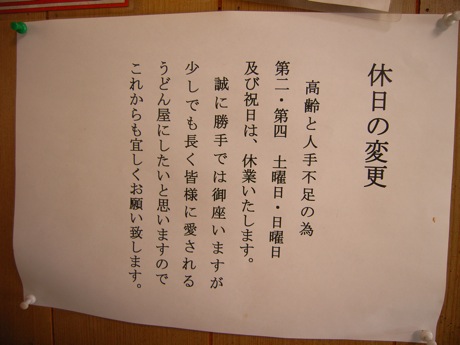 休日の変更
高齢と人手不足の為
第二・第四　土曜日・日曜日
及び祝日は、休業いたします。
誠に勝手では御座いますが
少しでも長く皆様に愛される
うどん屋にしたいと思いますので
これからも宜しくお願い致します。